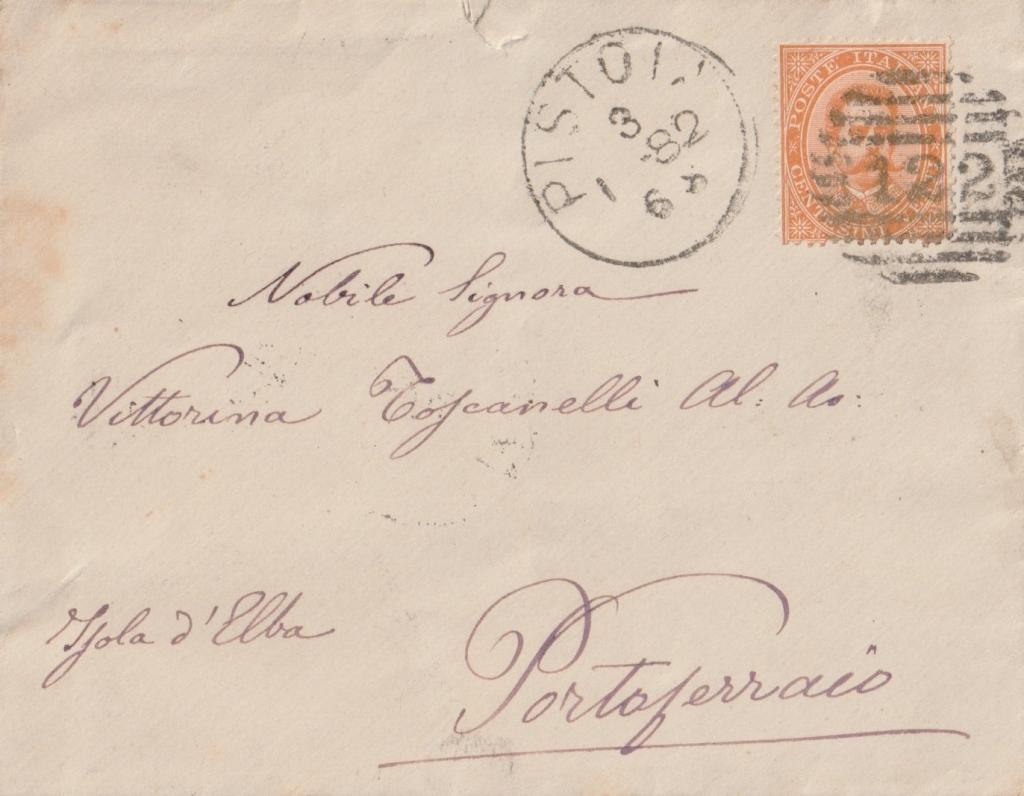 PISTOIA
3
82
1
6
POSTE ITALIANE
122
Nobile Signora
Vittorina Toscanelli Al: As:
Isola d'Elba
Portoferraio